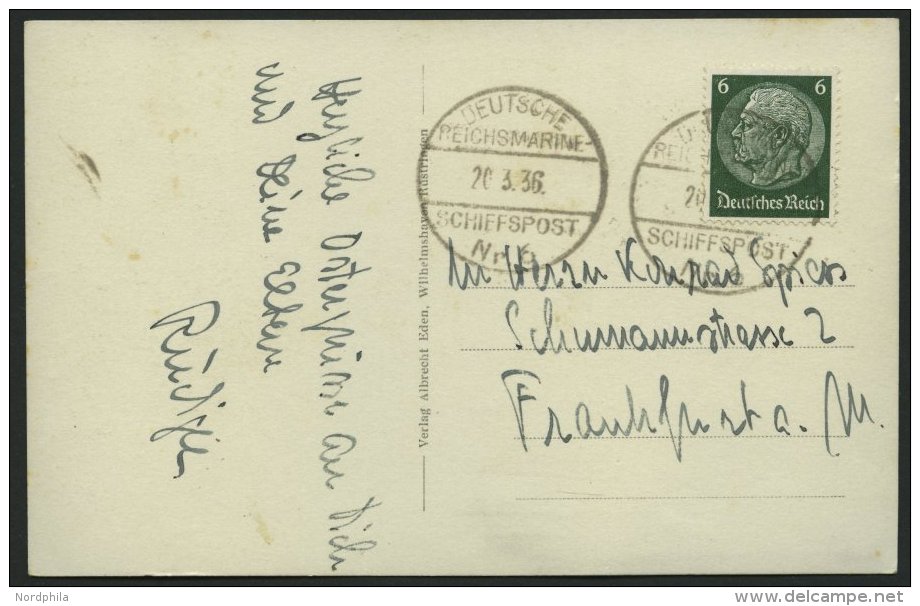 Herzliche Ostergrüsse an Dich
und Deine Eltern
Rüdiger
Verlag Albrecht Eden, Wilhelmshaven-Rüstringen
DEUTSCHE
REICHSMARINE
20.3.36.
SCHIFFSPOST
Nr. 6
20
SCHIFFSPOST
6 6
Deutsches Reich
An Herrn Konrad Spics
Schumannstrasse 2
Frankfurt a. M.
Nordphila
delcampe.net